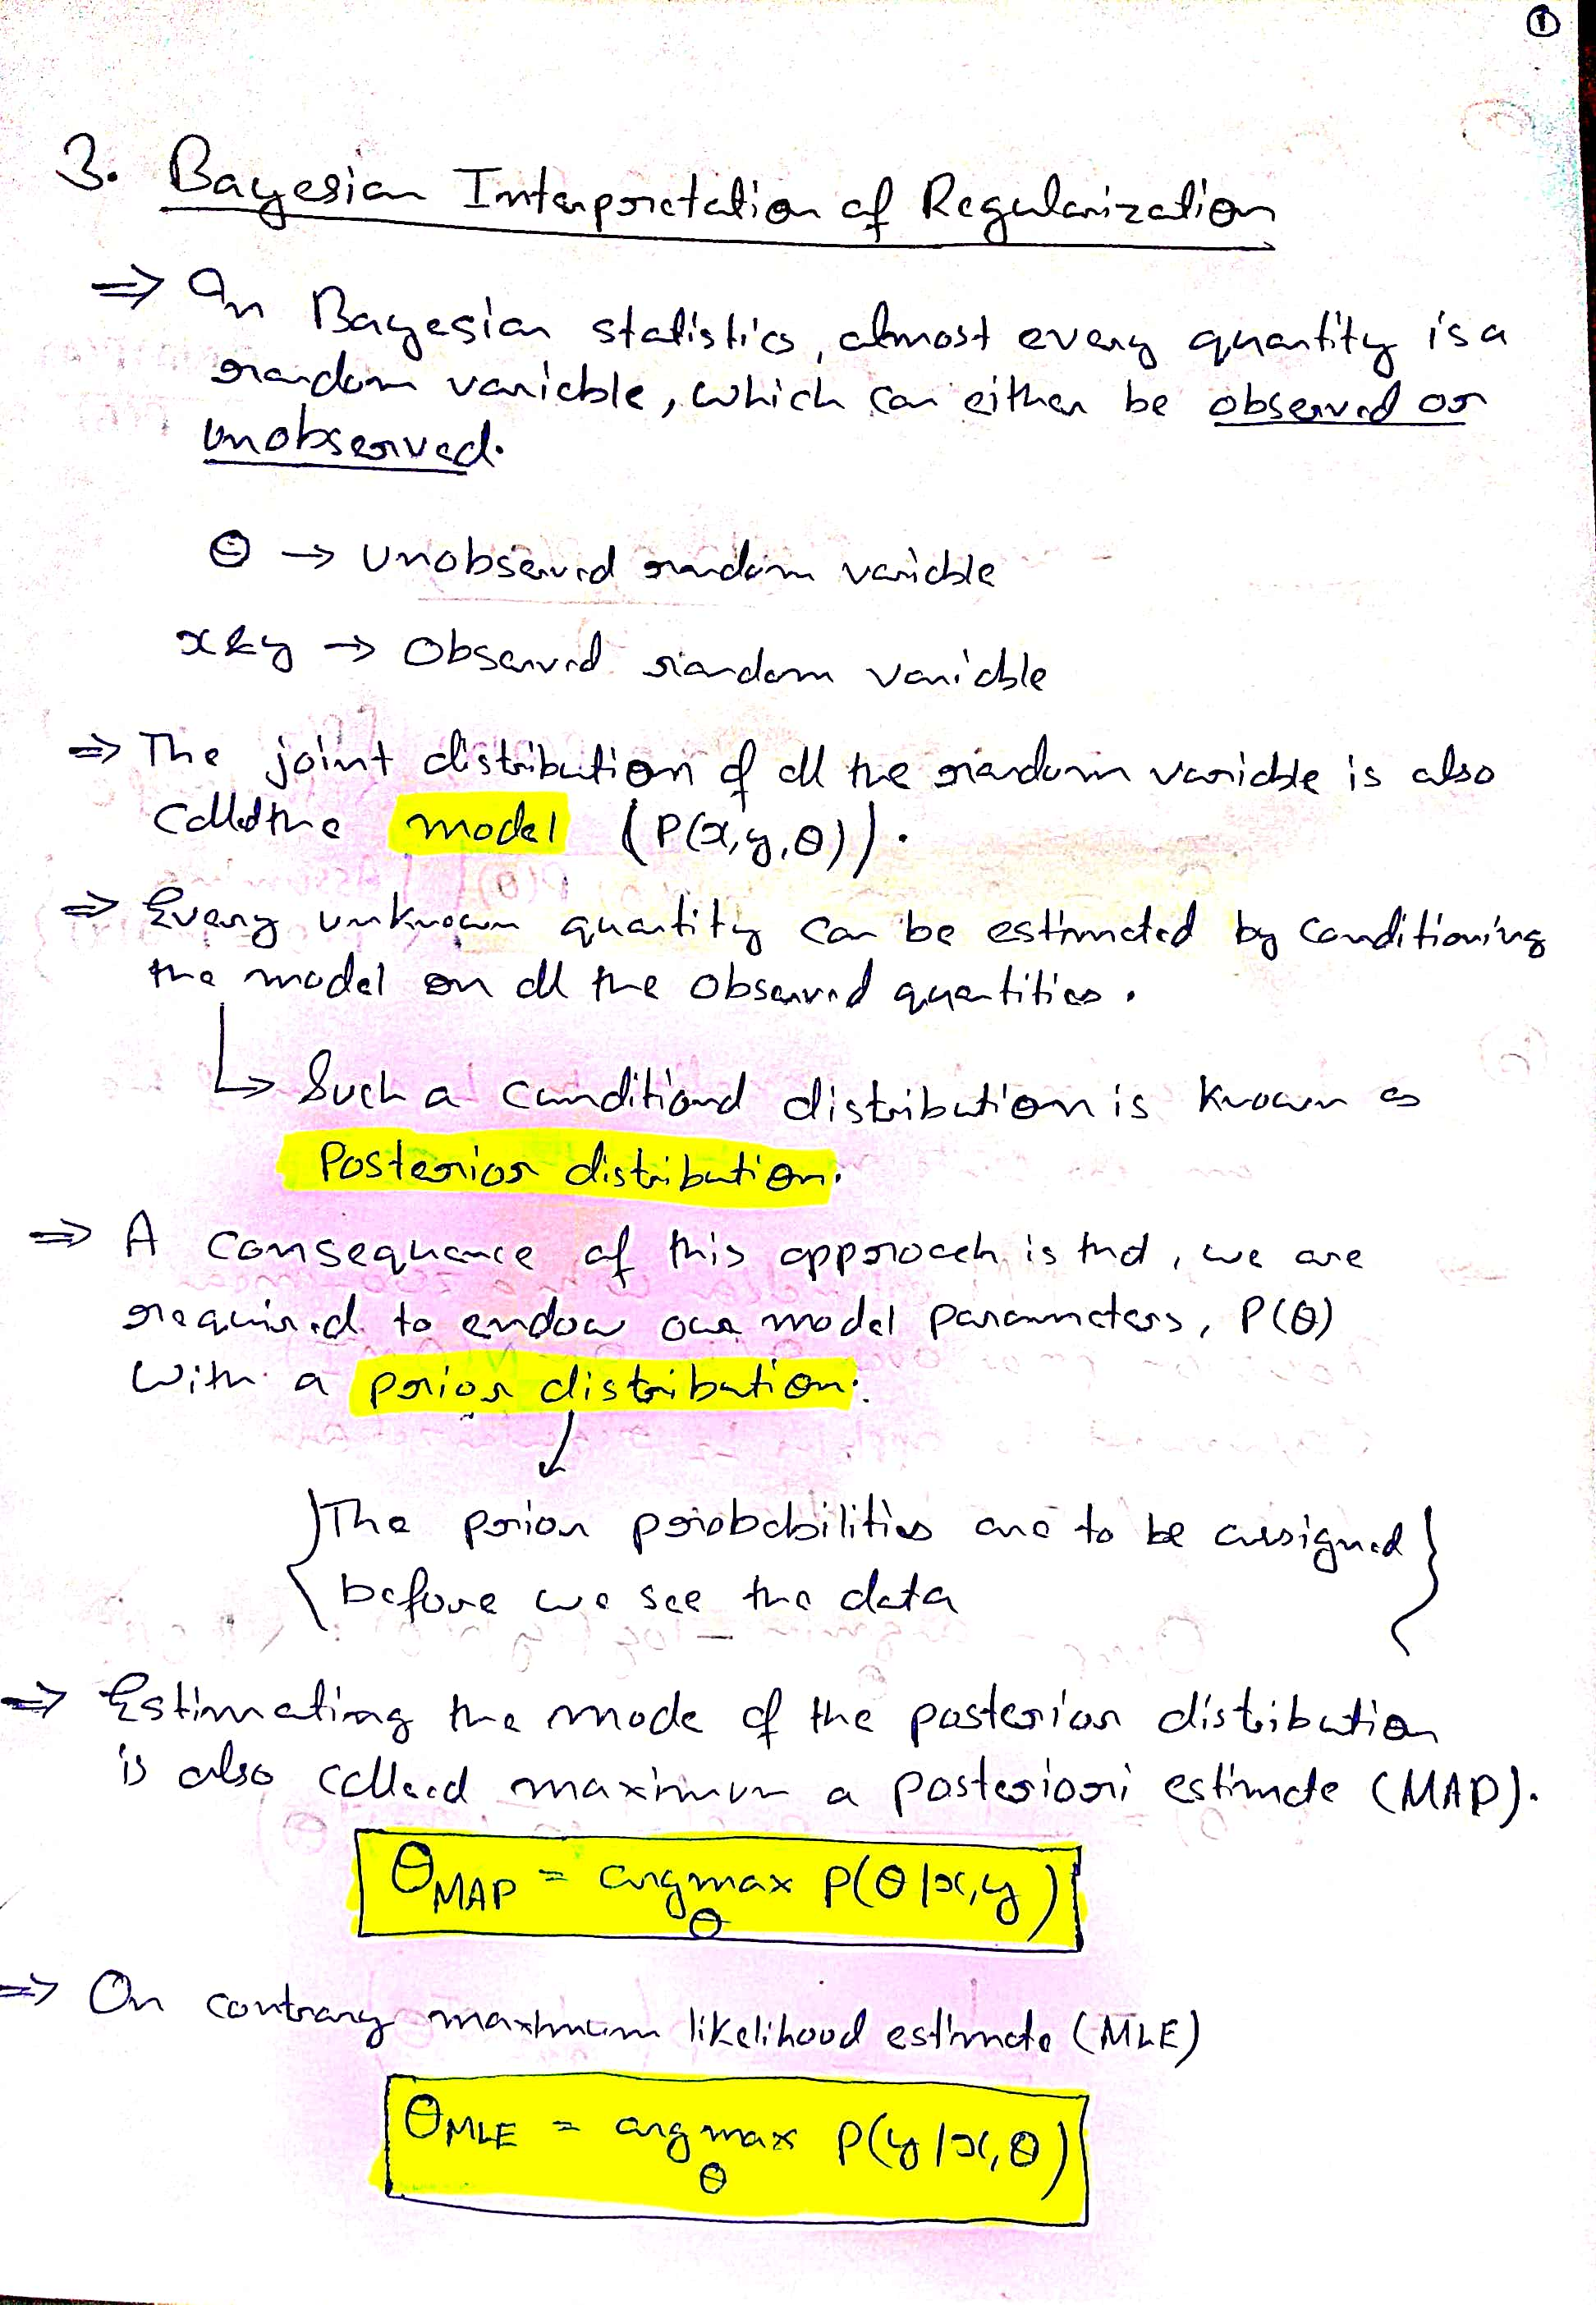 ①
3. Bayesian Interpretation of Regularization
⇒ In Bayesian statistics, almost every quantity is a
random variable, which can either be observed or
unobserved.
θ → Unobserved random variable
x & y → Observed random variable
⇒ The joint distribution of all the random variable is also
called the model (P(x,y,θ)).
⇒ Every unknown quantity can be estimated by conditioning
the model on all the observed quantities.
↳ Such a conditional distribution is known as
Posterior distribution.
⇒ A consequence of this approach is that, we are
required to endow our model parameters, P(θ)
with a prior distribution.
↓
{The prior probabilities are to be assigned
before we see the data}
⇒ Estimating the mode of the posterior distribution
is also called maximum a posteriori estimate (MAP).
θMAP = argmax P(θ|x,y)
θ
⇒ On contrary maximum likelihood estimate (MLE)
θMLE = argmax P(y|x,θ)
θ